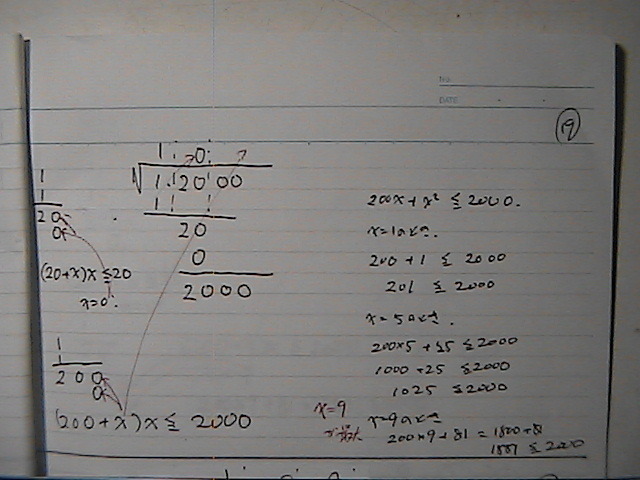 NO.
DATE
19
1. 0.
√1.20 00
1
20
0
2000
1
1
20
0
(20+x)x ≦ 20
x=0.
1
1
200
0
(200+x)x ≦ 2000
200x + x² ≦ 2000.
x=1のとき.
200 + 1 ≦ 2000
201 ≦ 2000
x=5のとき.
200×5 + 25 ≦ 2000
1000 + 25 ≦ 2000
1025 ≦ 2000
x=9
x=9のとき
200×9 + 81 = 1800+81
≦ 2000